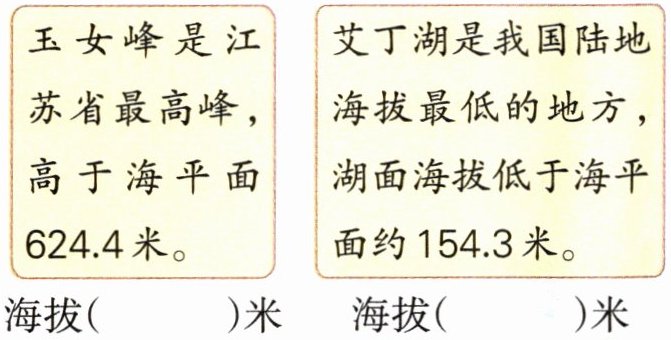 玉女峰是江
苏省最高峰，
高于海平面
624.4米。
海拔(　　　)米
艾丁湖是我国陆地
海拔最低的地方，
湖面海拔低于海平
面约154.3米。
海拔(　　　)米